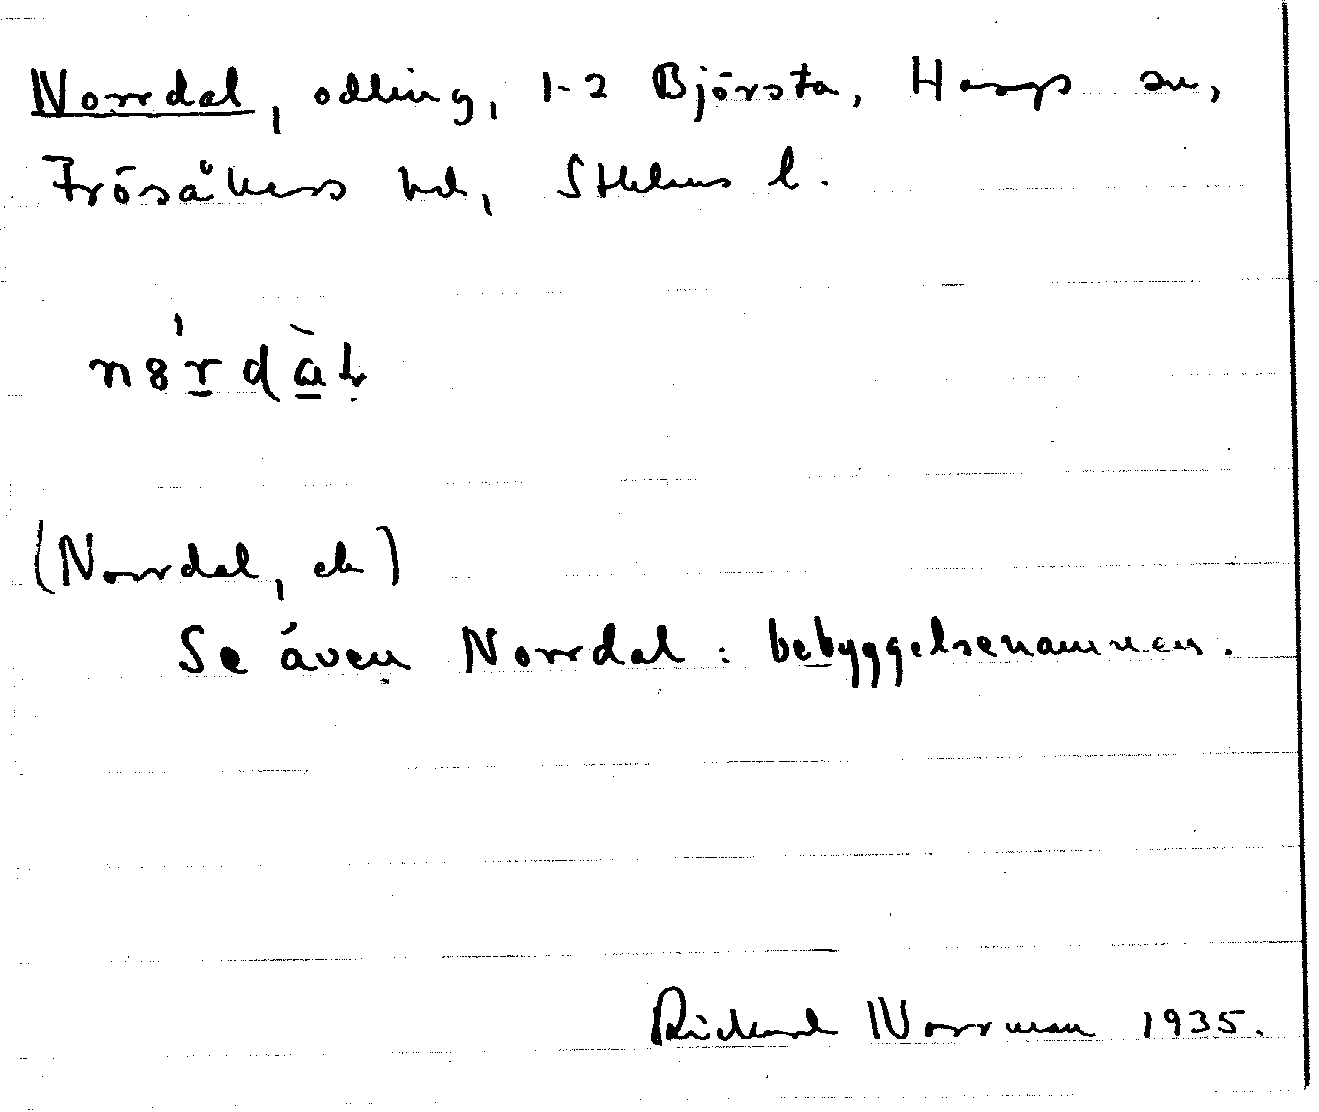 Norrdal, odling, 1-2 Björsta, Hargs sn,
Frösåkers hd, Sthlms l.
(Norrdal, ek)
Se även Norrdal : bebyggelsenamnen.
Rickard Norrman 1935.